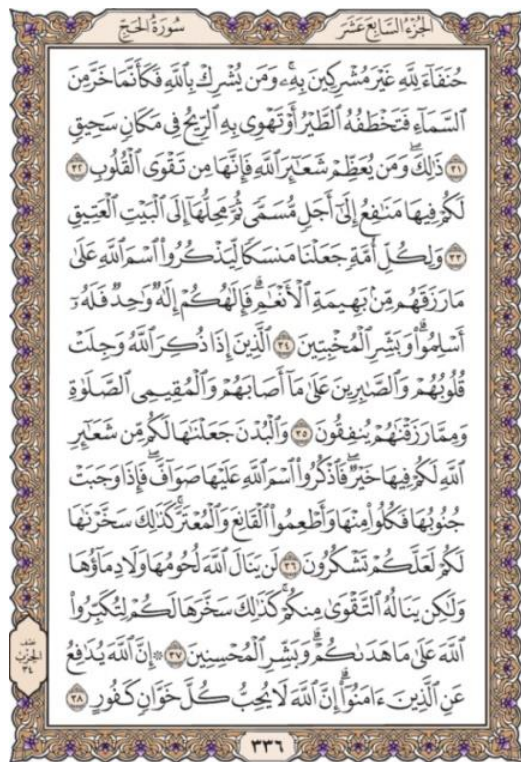 سُورَةُ الحَجِّ
الجُزْءُ السَّابِعَ عَشَرَ
حُنَفَآءَ لِلَّهِ غَيۡرَ مُشۡرِكِينَ بِهِۦۚ وَمَن يُشۡرِكۡ بِٱللَّهِ فَكَأَنَّمَا خَرَّ مِنَ
ٱلسَّمَآءِ فَتَخۡطَفُهُ ٱلطَّيۡرُ أَوۡ تَهۡوِي بِهِ ٱلرِّيحُ فِي مَكَانٖ سَحِيقٖ
٣١ ذَٰلِكَۖ وَمَن يُعَظِّمۡ شَعَٰٓئِرَ ٱللَّهِ فَإِنَّهَا مِن تَقۡوَى ٱلۡقُلُوبِ ٣٢
لَكُمۡ فِيهَا مَنَٰفِعُ إِلَىٰٓ أَجَلٖ مُّسَمّٗى ثُمَّ مَحِلُّهَآ إِلَى ٱلۡبَيۡتِ ٱلۡعَتِيقِ
٣٣ وَلِكُلِّ أُمَّةٖ جَعَلۡنَا مَنسَكٗا لِّيَذۡكُرُواْ ٱسۡمَ ٱللَّهِ عَلَىٰ
مَا رَزَقَهُم مِّنۢ بَهِيمَةِ ٱلۡأَنۡعَٰمِۗ فَإِلَٰهُكُمۡ إِلَٰهٞ وَٰحِدٞ فَلَهُۥٓ
أَسۡلِمُواْۗ وَبَشِّرِ ٱلۡمُخۡبِتِينَ ٣٤ ٱلَّذِينَ إِذَا ذُكِرَ ٱللَّهُ وَجِلَتۡ
قُلُوبُهُمۡ وَٱلصَّٰبِرِينَ عَلَىٰ مَآ أَصَابَهُمۡ وَٱلۡمُقِيمِي ٱلصَّلَوٰةِ
وَمِمَّا رَزَقۡنَٰهُمۡ يُنفِقُونَ ٣٥ وَٱلۡبُدۡنَ جَعَلۡنَٰهَا لَكُم مِّن شَعَٰٓئِرِ
ٱللَّهِ لَكُمۡ فِيهَا خَيۡرٞۖ فَٱذۡكُرُواْ ٱسۡمَ ٱللَّهِ عَلَيۡهَا صَوَآفَّۖ فَإِذَا وَجَبَتۡ
جُنُوبُهَا فَكُلُواْ مِنۡهَا وَأَطۡعِمُواْ ٱلۡقَانِعَ وَٱلۡمُعۡتَرَّۚ كَذَٰلِكَ سَخَّرۡنَٰهَا
لَكُمۡ لَعَلَّكُمۡ تَشۡكُرُونَ ٣٦ لَن يَنَالَ ٱللَّهَ لُحُومُهَا وَلَا دِمَآؤُهَا
وَلَٰكِن يَنَالُهُ ٱلتَّقۡوَىٰ مِنكُمۡۚ كَذَٰلِكَ سَخَّرَهَا لَكُمۡ لِتُكَبِّرُواْ
ٱللَّهَ عَلَىٰ مَا هَدَىٰكُمۡۗ وَبَشِّرِ ٱلۡمُحۡسِنِينَ ٣٧ ۞ إِنَّ ٱللَّهَ يُدَٰفِعُ
عَنِ ٱلَّذِينَ ءَامَنُوٓاْۗ إِنَّ ٱللَّهَ لَا يُحِبُّ كُلَّ خَوَّانٖ كَفُورٍ ٣٨
نصف
الحزب
٣٤
٣٣٦